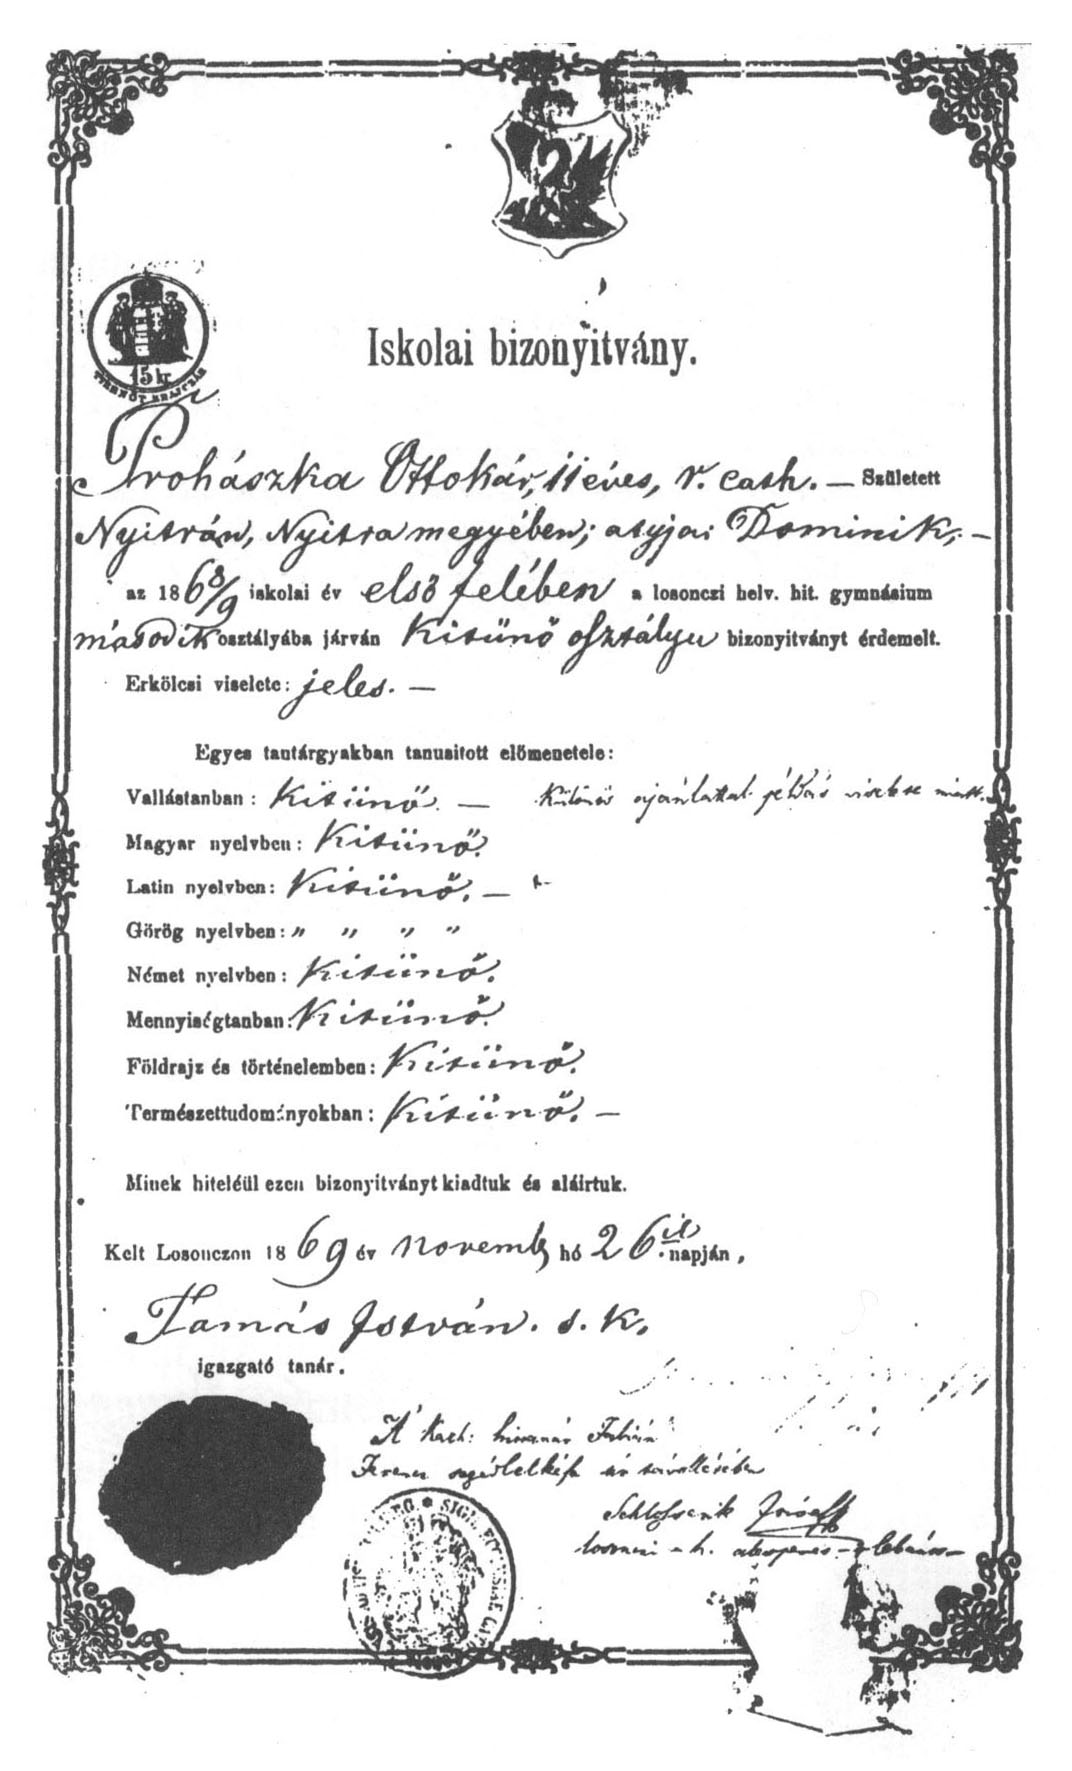 15 kr
TIZENÖT KRAJCZÁR
Iskolai bizonyitvány.
Prohászka Ottokár, 11 éves, r. cath. — Született
Nyitrán, Nyitra megyében; atyja: Dominik, —
az 1868/9 iskolai év első felében a losonczi helv. hit. gymnásium
második osztályába járván Kitünő osztályu bizonyitványt érdemelt.
Erkölcsi viselete: jeles. —
Egyes tantárgyakban tanusitott előmenetele:
Vallástanban: Kitünő. — Különös ajánlattal példás viselete miatt.
Magyar nyelvben: Kitünő.
Latin nyelvben: Kitünő. —
Görög nyelvben: „ „ „ „
Német nyelvben: Kitünő.
Mennyiségtanban: Kitünő.
Földrajz és történelemben: Kitünő.
Természettudományokban: Kitünő. —
Minek hiteléül ezen bizonyitványt kiadtuk és aláirtuk.
Kelt Losonczon 1869 év novemb hó 26.ik napján,
Tamás István. s. k.
igazgató tanár.
A kath:
Ferencz segédlelkész úr távollétében
József
SIG. ECCLESIAE